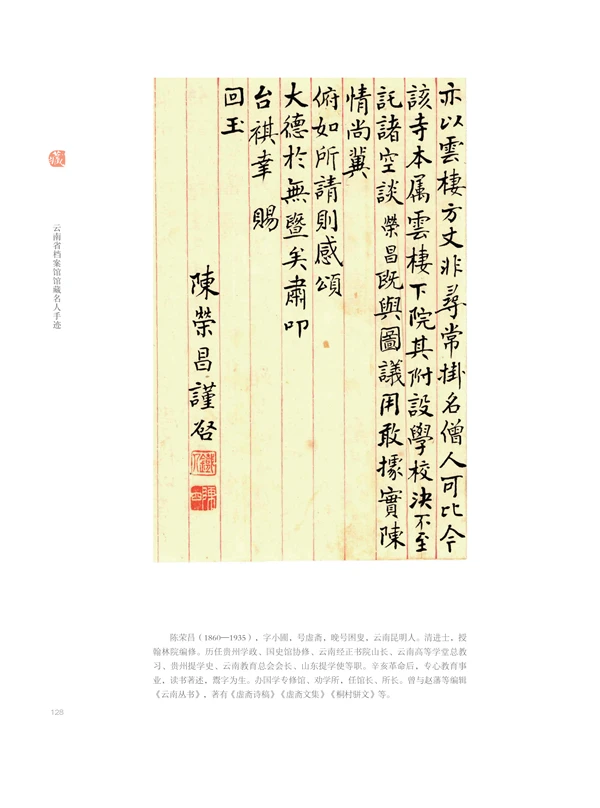 亦以雲棲方丈非尋常掛名僧人可比今
該寺本属雲棲下院其附設學校決不至
託諸空談榮昌既與圖議用敢據實陳
情尚冀
俯如所請則感頌
大德於無暨矣肅叩
台祺幸賜
回玉
陳榮昌謹啓
云南省档案馆馆藏名人手迹
陈荣昌（1860—1935），字小圃，号虚斋，晚号困叟，云南昆明人。清进士，授
翰林院编修。历任贵州学政、国史馆协修、云南经正书院山长、云南高等学堂总教
习、贵州提学史、云南教育总会会长、山东提学使等职。辛亥革命后，专心教育事
业，读书著述，鬻字为生。办国学专修馆、劝学所，任馆长、所长。曾与赵藩等编辑
《云南丛书》，著有《虚斋诗稿》《虚斋文集》《桐村骈文》等。
128